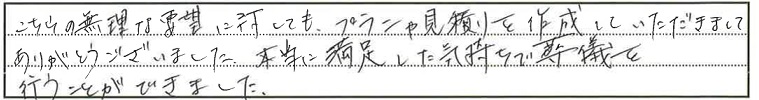 こちらの無理な要望に対しても、プランや見積りを作成していただきまして
ありがとうございました。本当に満足した気持ちで葬儀を
行うことができました。